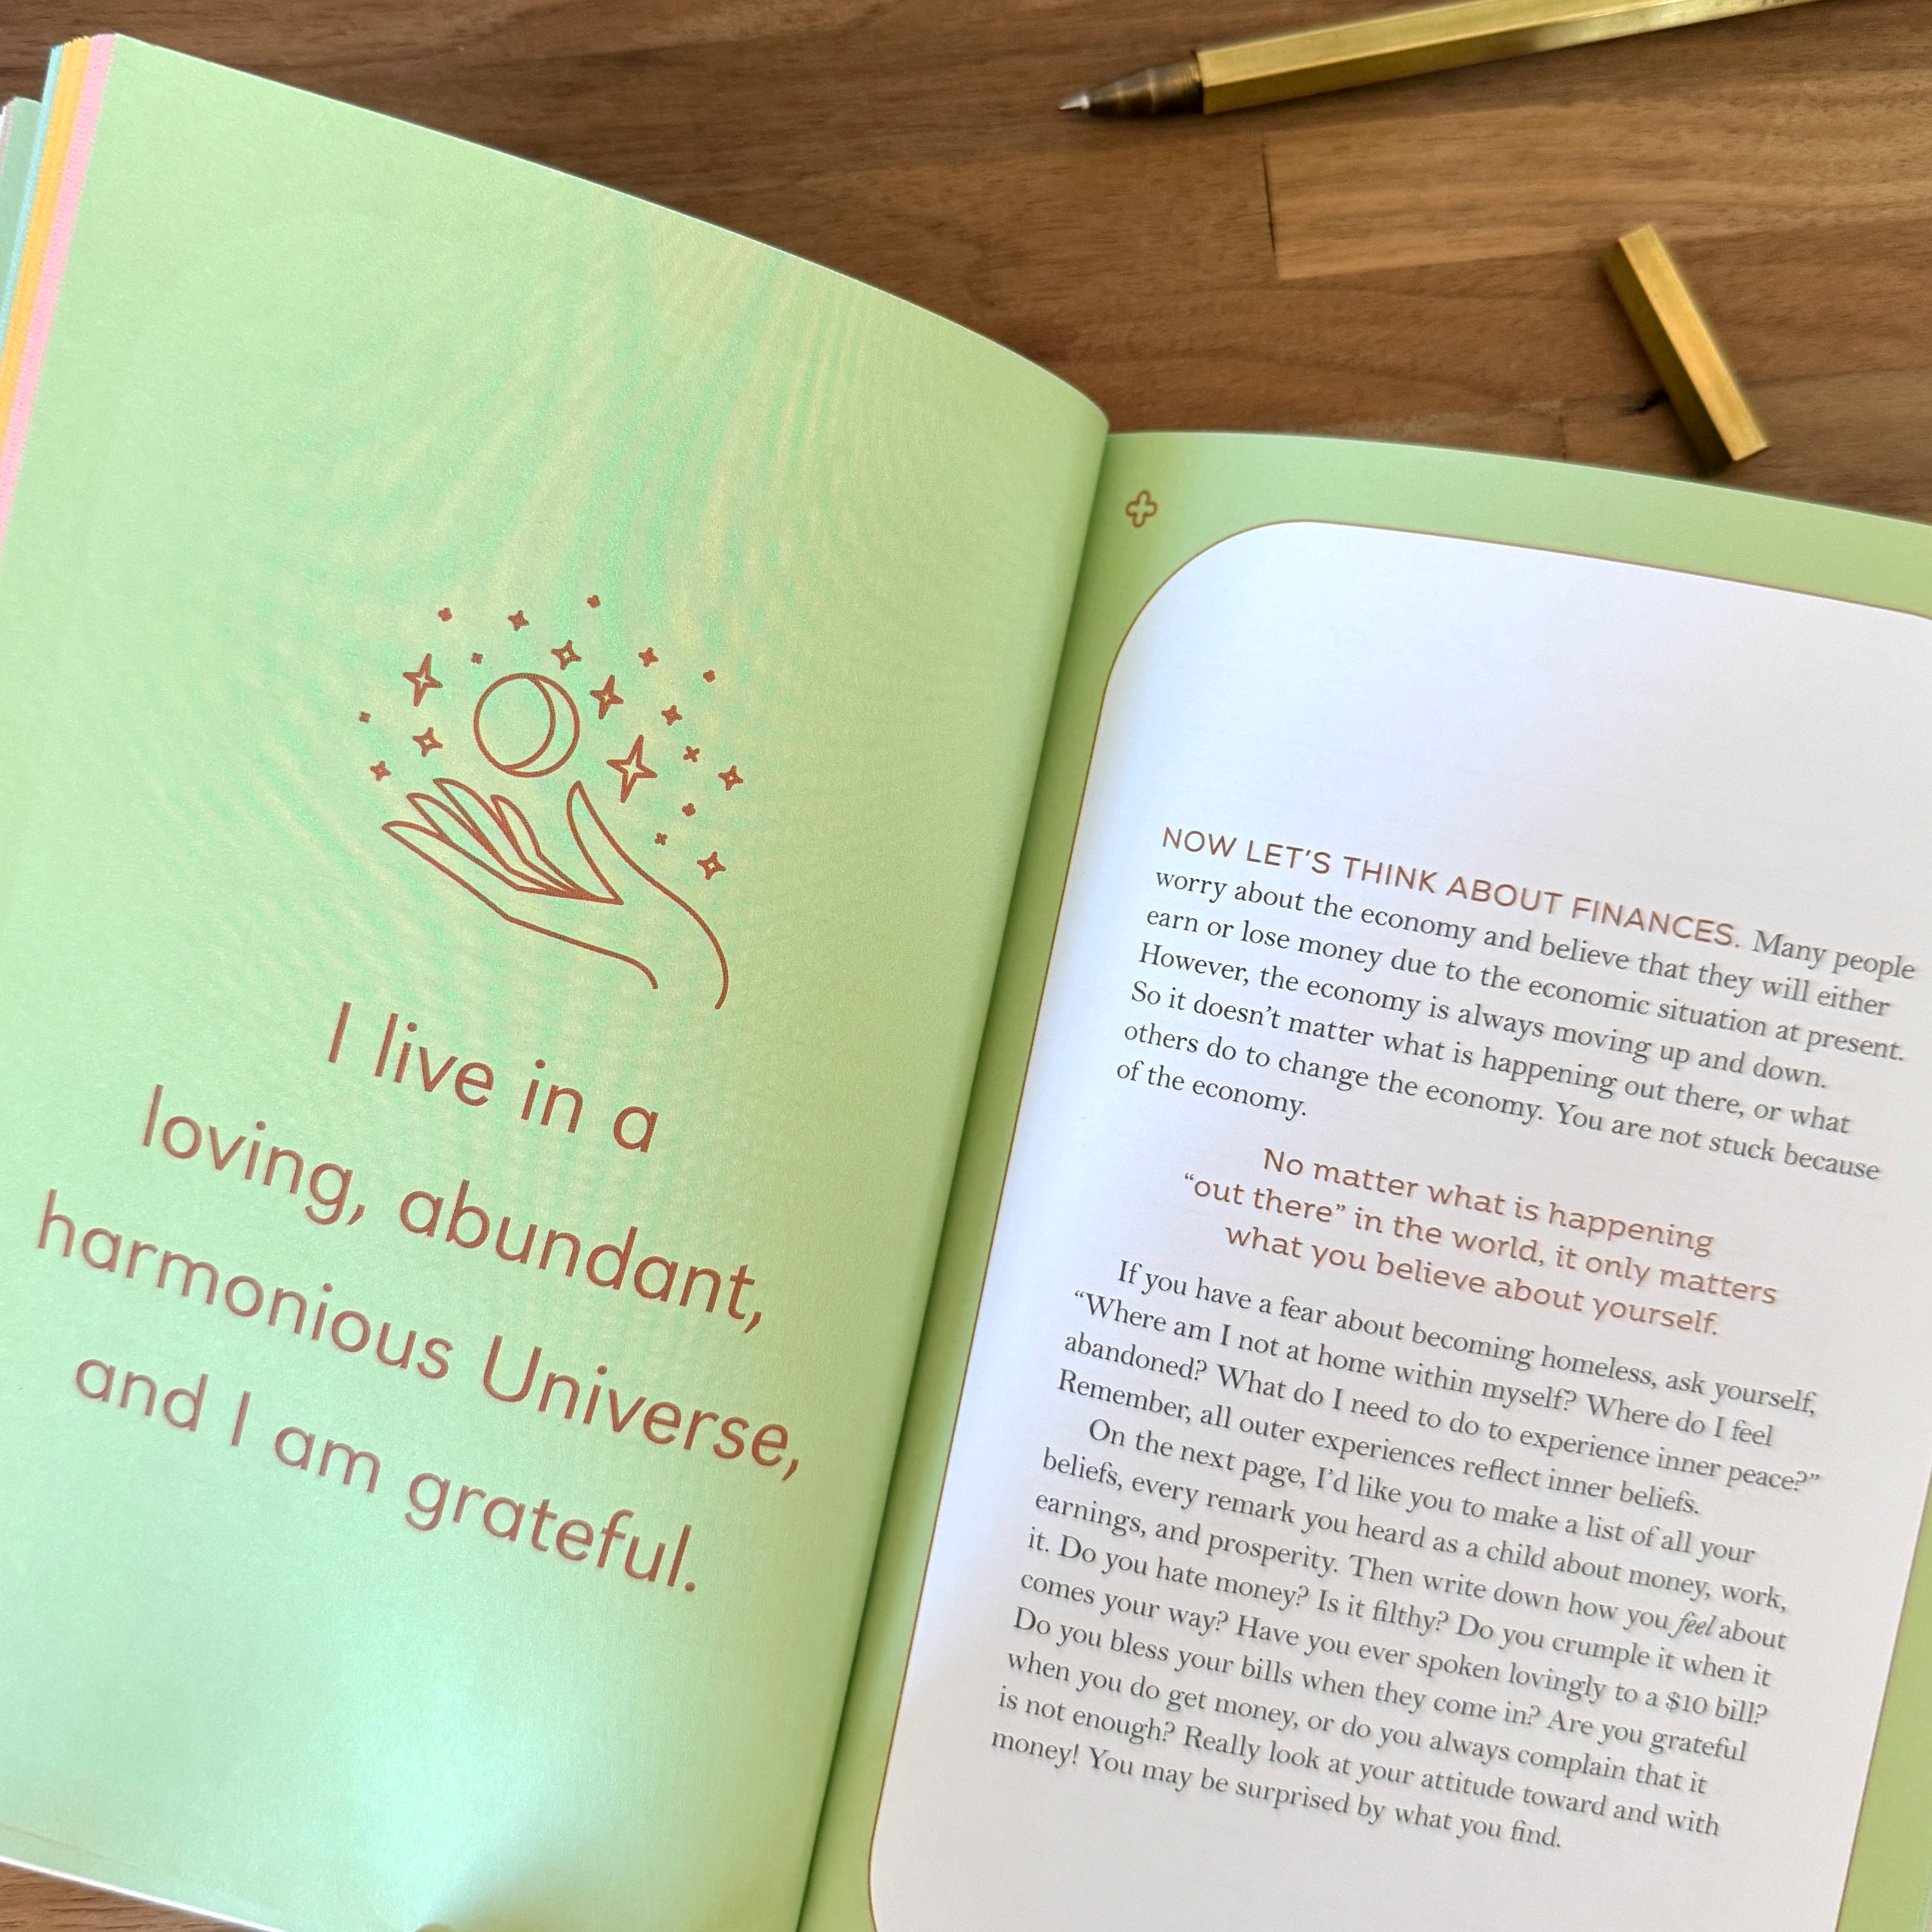 I live in a
loving, abundant,
harmonious Universe,
and I am grateful.
NOW LET'S THINK ABOUT FINANCES. Many people
worry about the economy and believe that they will either
earn or lose money due to the economic situation at present.
However, the economy is always moving up and down.
So it doesn't matter what is happening out there, or what
others do to change the economy. You are not stuck because
of the economy.
No matter what is happening
"out there" in the world, it only matters
what you believe about yourself.
If you have a fear about becoming homeless, ask yourself,
"Where am I not at home within myself? Where do I feel
abandoned? What do I need to do to experience inner peace?"
Remember, all outer experiences reflect inner beliefs.
On the next page, I'd like you to make a list of all your
beliefs, every remark you heard as a child about money, work,
earnings, and prosperity. Then write down how you feel about
it. Do you hate money? Is it filthy? Do you crumple it when it
comes your way? Have you ever spoken lovingly to a $10 bill?
Do you bless your bills when they come in? Are you grateful
when you do get money, or do you always complain that it
is not enough? Really look at your attitude toward and with
money! You may be surprised by what you find.